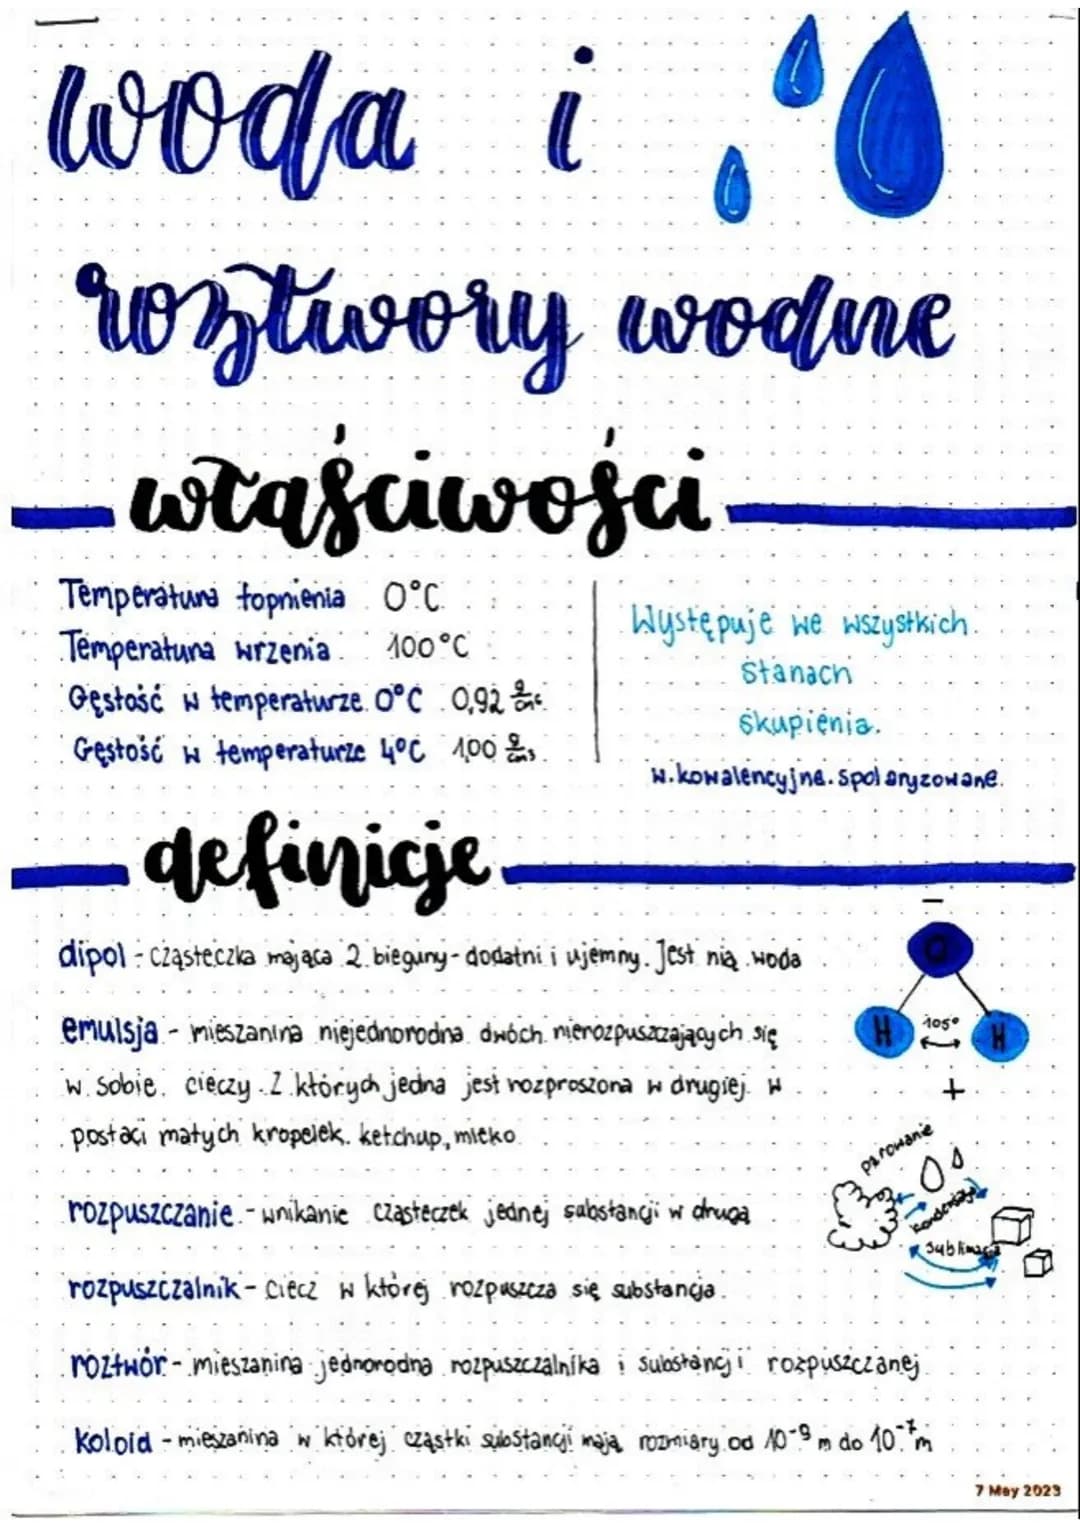 woda i
roztwory wodne
właściwości
Temperatura topnienia 0°C
Temperatura wrzenia 100°C
Gęstość w temperaturze 0°C 0,92
Gęstość w temperaturze 4°C 1,00 g/cm³
Występuje we wszystkich
stanach
skupienia.
w.kowalencyjne.spolaryzowane.
definicje
dipol - cząsteczka mająca 2 bieguny - dodatni i ujemny. Jest nią woda
emulsja - mieszanina niejednorodna dwóch nierozpuszczających się
w sobie cieczy. Z których jedna jest rozproszona w drugiej w
postaci małych kropelek. ketchup, mleko
rozpuszczanie - wnikanie cząsteczek jednej substancji w drugą
rozpuszczalnik - ciecz w której rozpuszcza się substancja.
roztwór - mieszanina jednorodna rozpuszczalnika i substancji rozpuszczanej
koloid - mieszanina w której cząstki substancji mają rozmiary od 10⁻⁹ m do 10⁻⁷ m
−
O
H 105° H
+
parowanie
kondensacja
sublimacja
7 May 2023